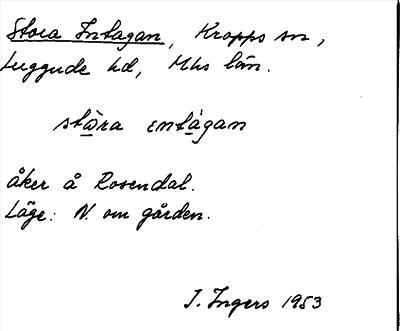 Stora Intagan, Kropps sn,
Luggude hd, Mhs län.
stòra entágan
åker å Rosendal.
Läge: N. om gården.
I. Ingers 1953